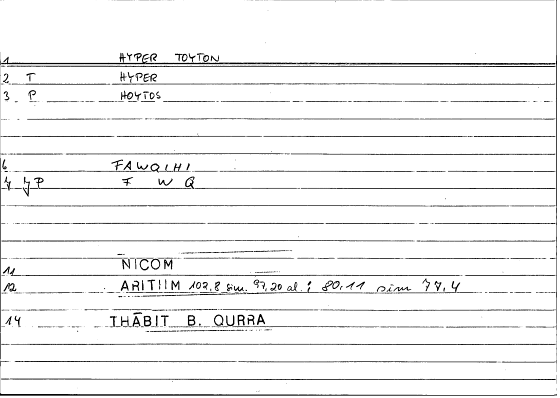 1 HYPER TOYTON
2 T HYPER
3 P HOYTOS
6 FAWQIHI
7 P F W Q
11 NICOM
12 ARITIIM 102,8 sim. 97,20 al.; 80,11 sim 77,4
14 THĀBIT B. QURRA